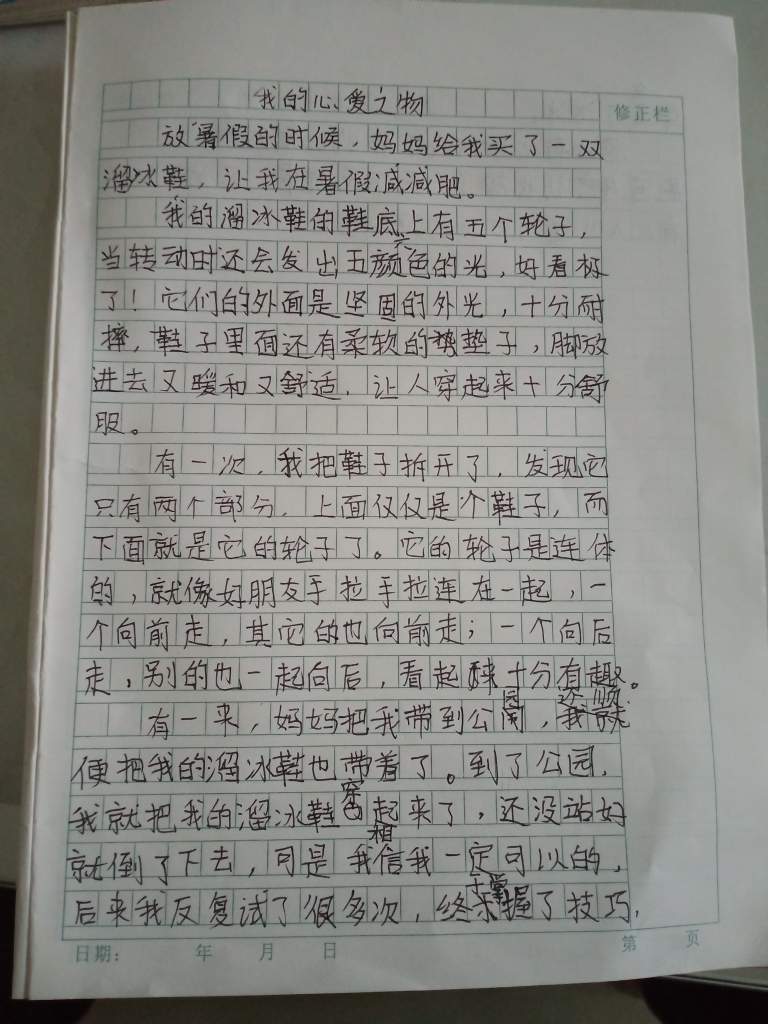 我的心爱之物
修正栏
放暑假的时候，妈妈给我买了一双
溜冰鞋，让我在暑假减减肥。
我的溜冰鞋的鞋底上有五个轮子，
当转动时还会发出五颜六色的光，好看极
了！它们的外面是坚固的外光，十分耐
摔，鞋子里面还有柔软的垫子，脚放
进去又暖和又舒适，让人穿起来十分舒
服。
有一次，我把鞋子拆开了，发现它
只有两个部分，上面仅仅是个鞋子，而
下面就是它的轮子了。它的轮子是连体
的，就像好朋友手拉手拉连在一起，一
个向前走，其它的也向前走；一个向后
走，别的也一起向后，看起来十分有趣。
有一来，妈妈把我带到公园，我还顺
便把我的溜冰鞋也带着了。到了公园，
我就把我的溜冰鞋穿起来了，还没站好
就倒了下去，可是我相信我一定可以的，
后来我反复试了很多次，终于掌握了技巧，
日期： 年 月 日 第 页